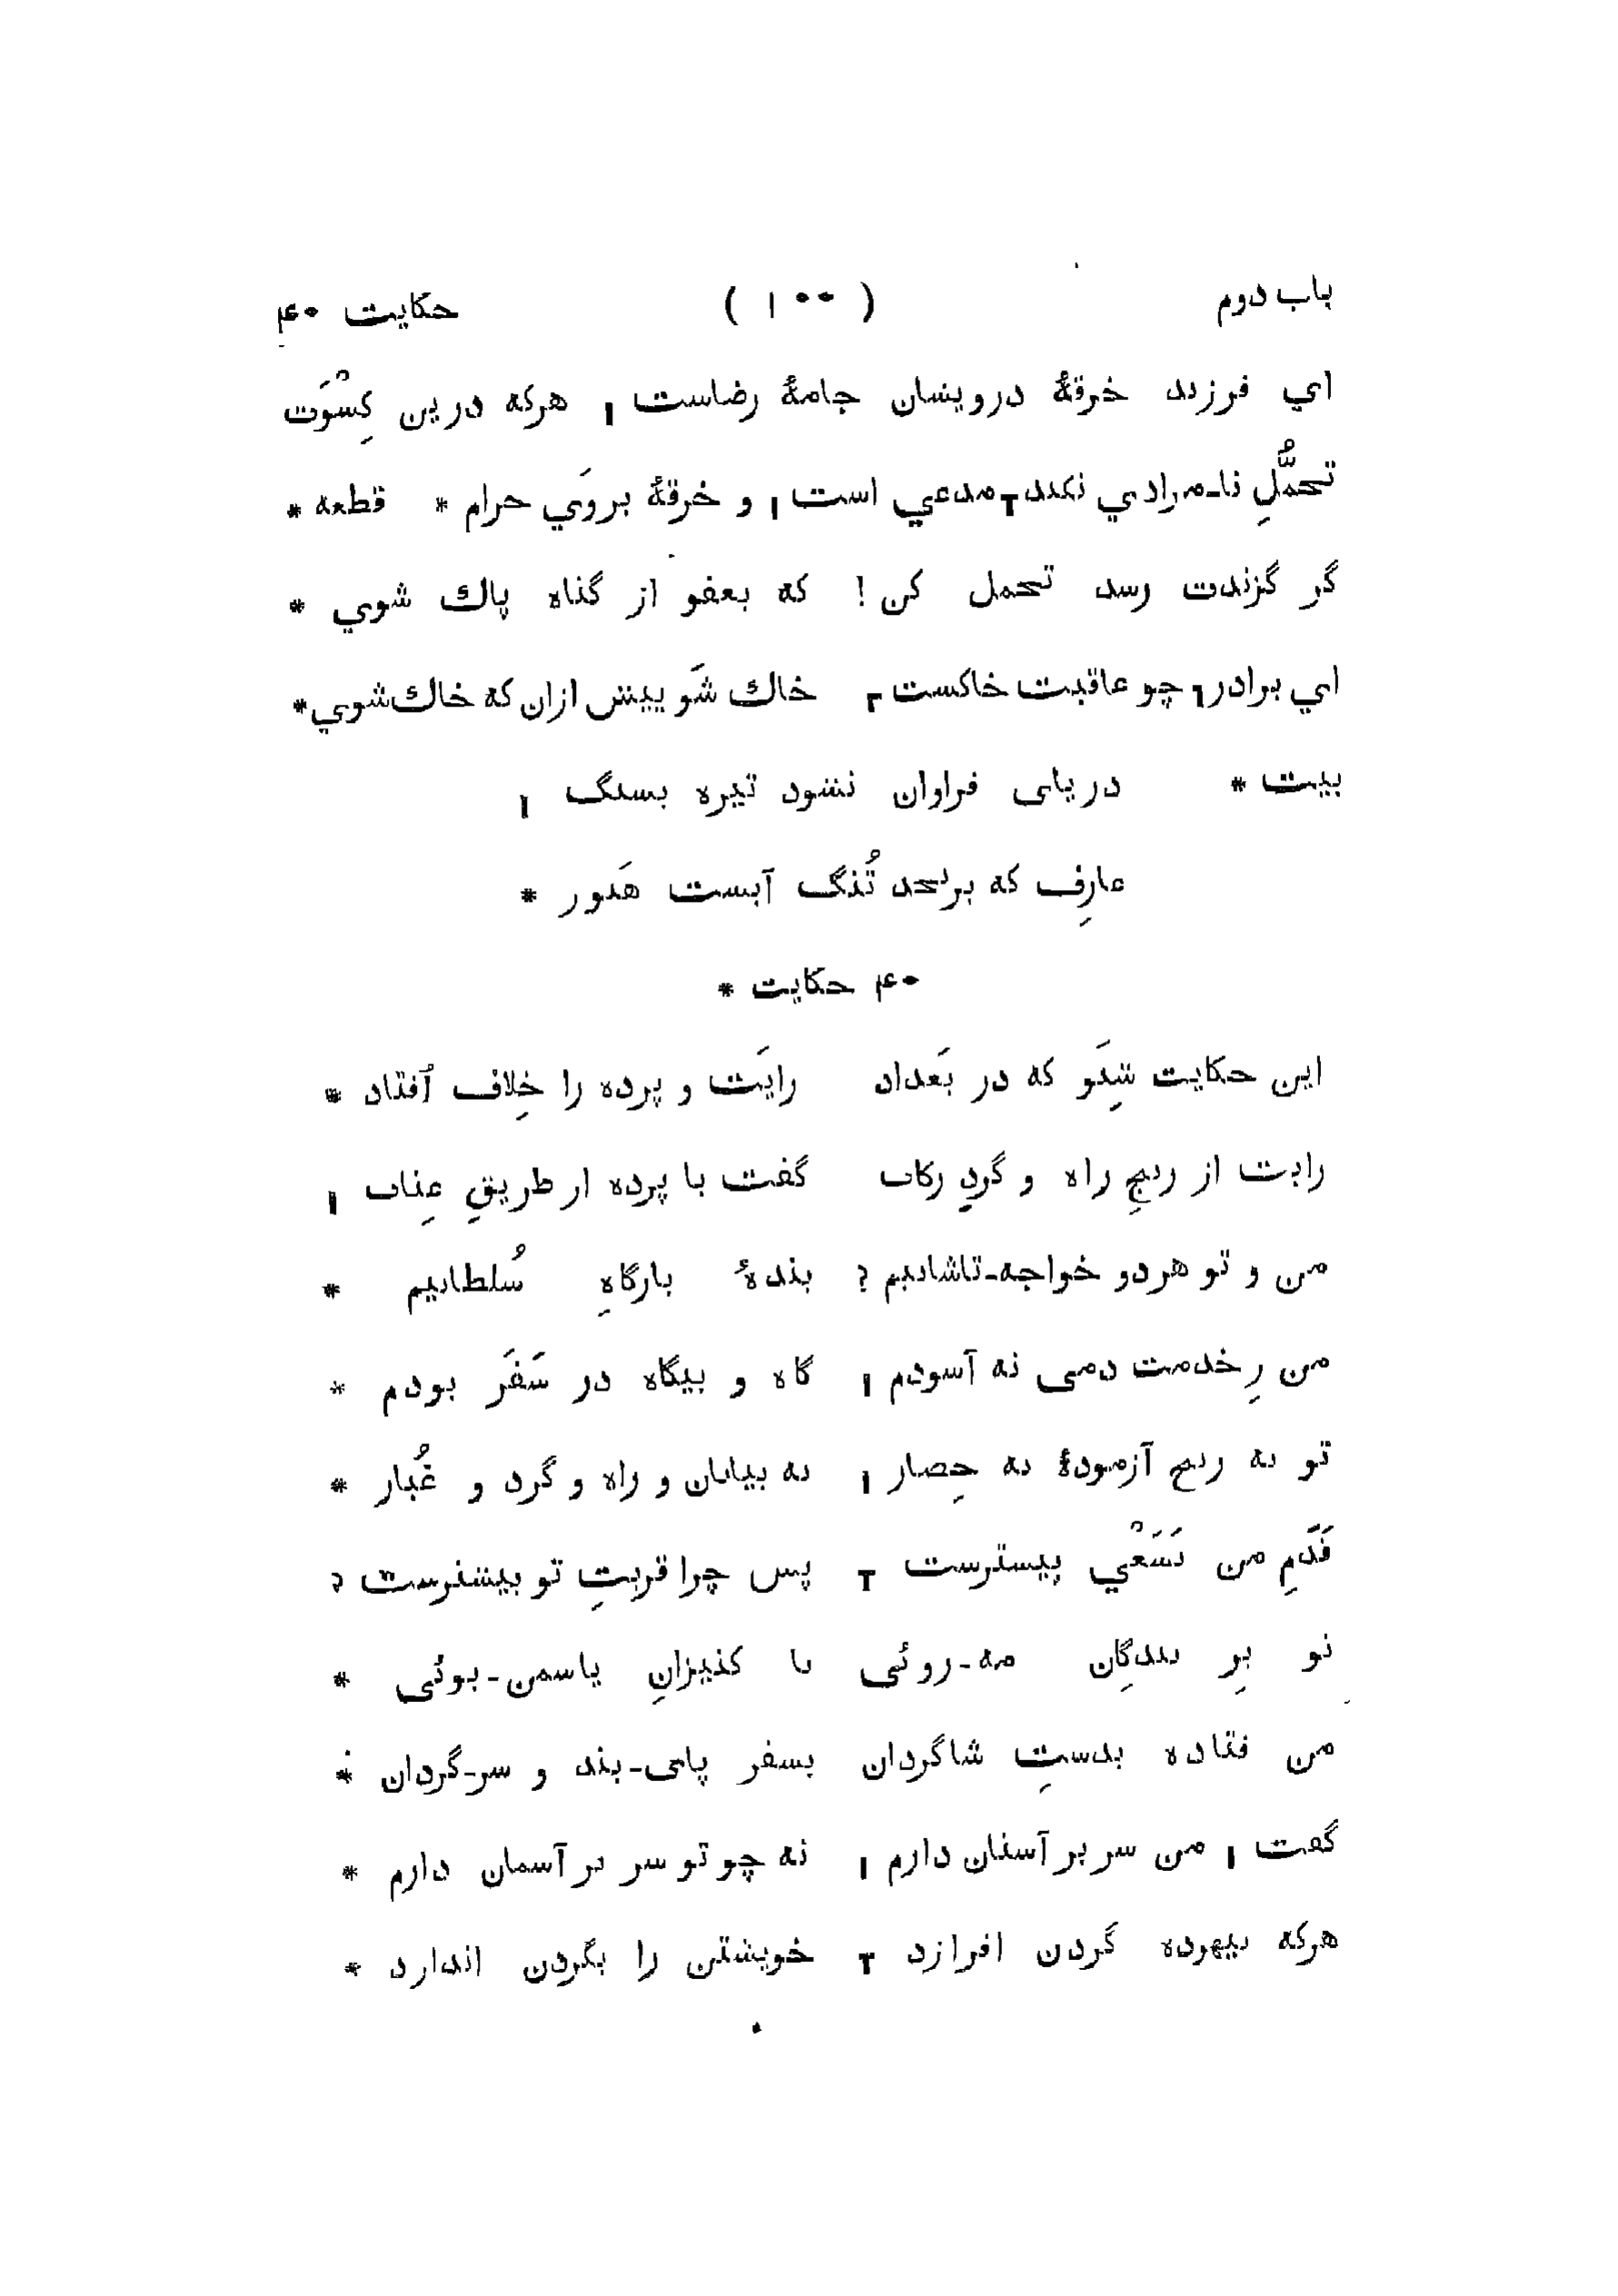 باب دوم ( ۱۰۰ ) حکایت ۴۰
اي فرزند خرقهٔ درویشان جامهٔ رضاست ۱ هرکه درین کِسْوَت
تحمُّلِ نا-مرادي نکند ۲ مدعي است ۱ و خرقهٔ بروَي حرام * قطعه *
گر گزندت رسد تحمل کن ! که بعفو از گناه پاك شوي *
اي برادر ۱ چو عاقبت خاکست ۲ خاك شَو پیش ازان که خاك شوي *
بیت * دریای فراوان نشود تیره بسنگ ۱
عارِف که برنجد تُنگ آبست هَنور *
۴۰ حکایت *
این حکایت شِنَو که در بَغداد رایَت و پرده را خِلاف اُفتاد *
رایت از رنجِ راه و گردِ رکاب گفت با پرده از طریقِ عِتاب ۱
من و تو هردو خواجه-تاشانیم ? بندهٔ بارگاهِ سُلطانیم *
من زِخدمت دمی نه آسودم ۱ گاه و بیگاه در سَفَر بودم *
تو نه رنج آزمودهٔ نه حِصار ۱ نه بیابان و راه و گرد و غُبار *
قَدَمِ من بَسَعْي پیشترست ۲ پس چرا قربتِ تو بیشترست ?
تو برِ بندگانِ مه-روئی با کنیزانِ یاسمن-بوئی *
من فتاده بدستِ شاگردان بسفر پای-بند و سر-گردان *
گفت ۱ من سر بر آستان دارم ۱ نه چو تو سر بر آسمان دارم *
هرکه بیهوده گردن افرازد ۲ خویشتن را بگردن اندازد *